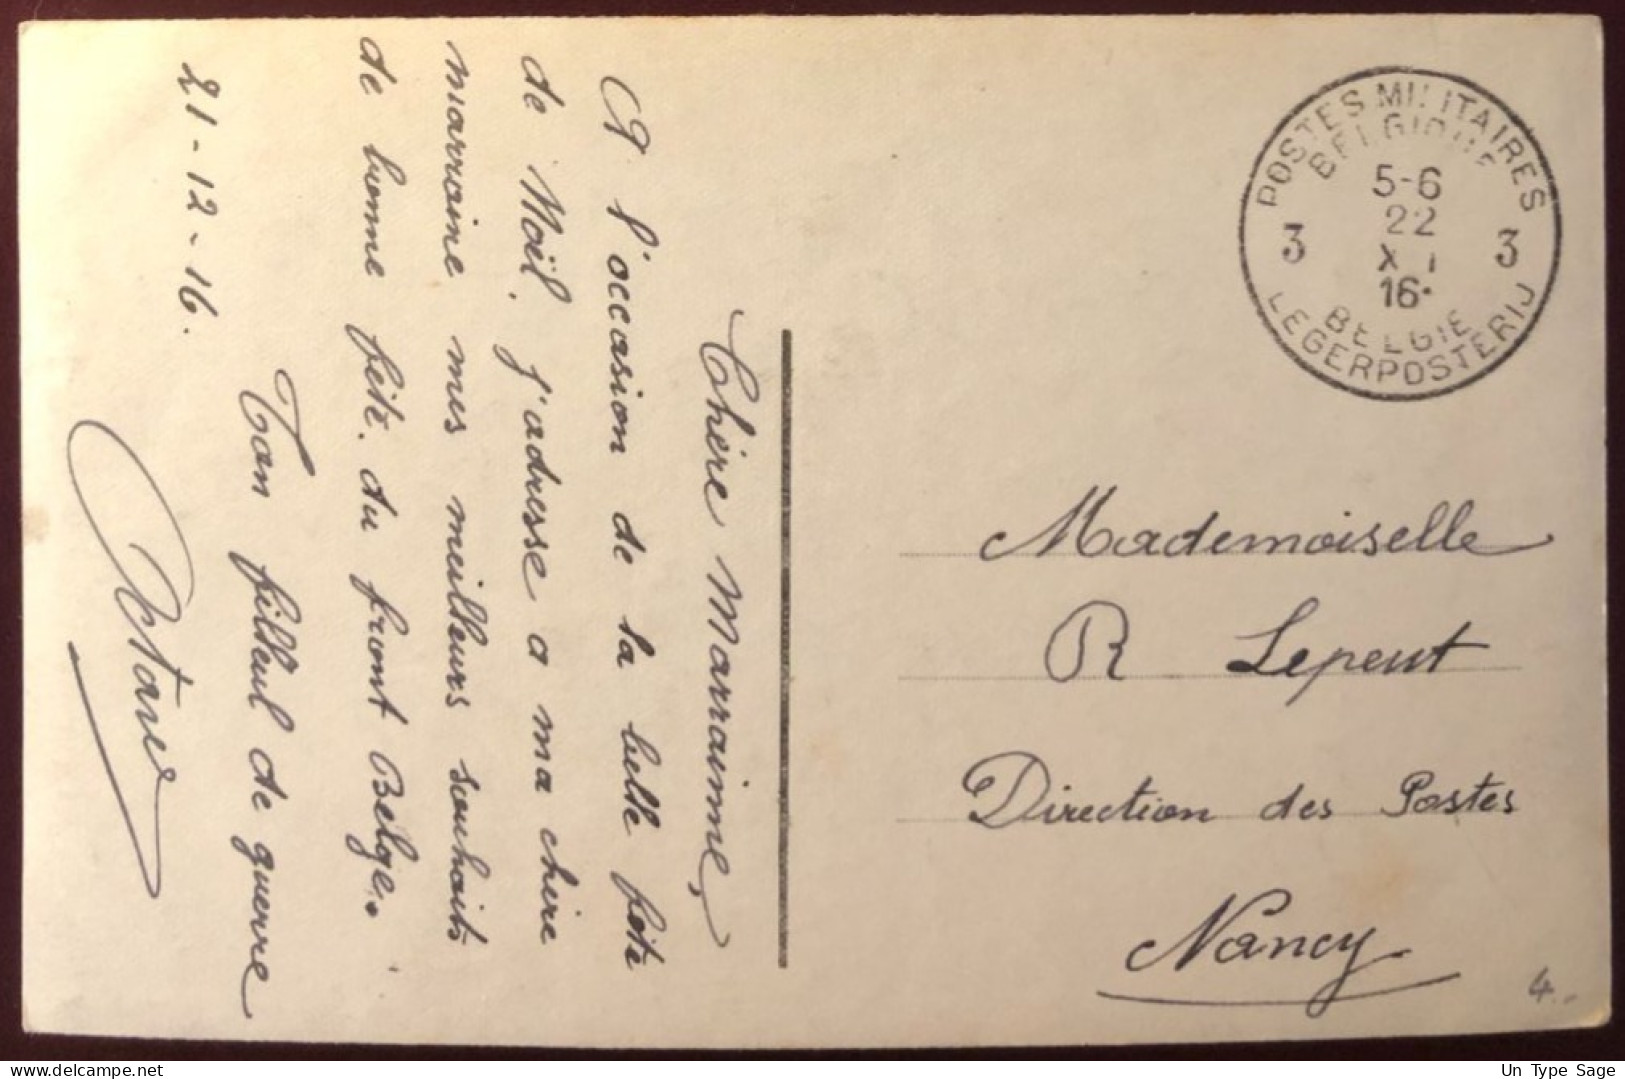 Chère Marraine,
A l'occasion de la belle fête
de Noël. j'adresse a ma chère
marraine mes meilleurs souhaits
de bonne fête. du front Belge.
Ton filleul de guerre
21-12-16.
POSTES MILITAIRES
BELGIQUE
5-6
22
3 3
16
BELGIE
LEGERPOSTERIJ
Mademoiselle
R Lepent
Direction des Postes
Nancy
4
Un Type Sage